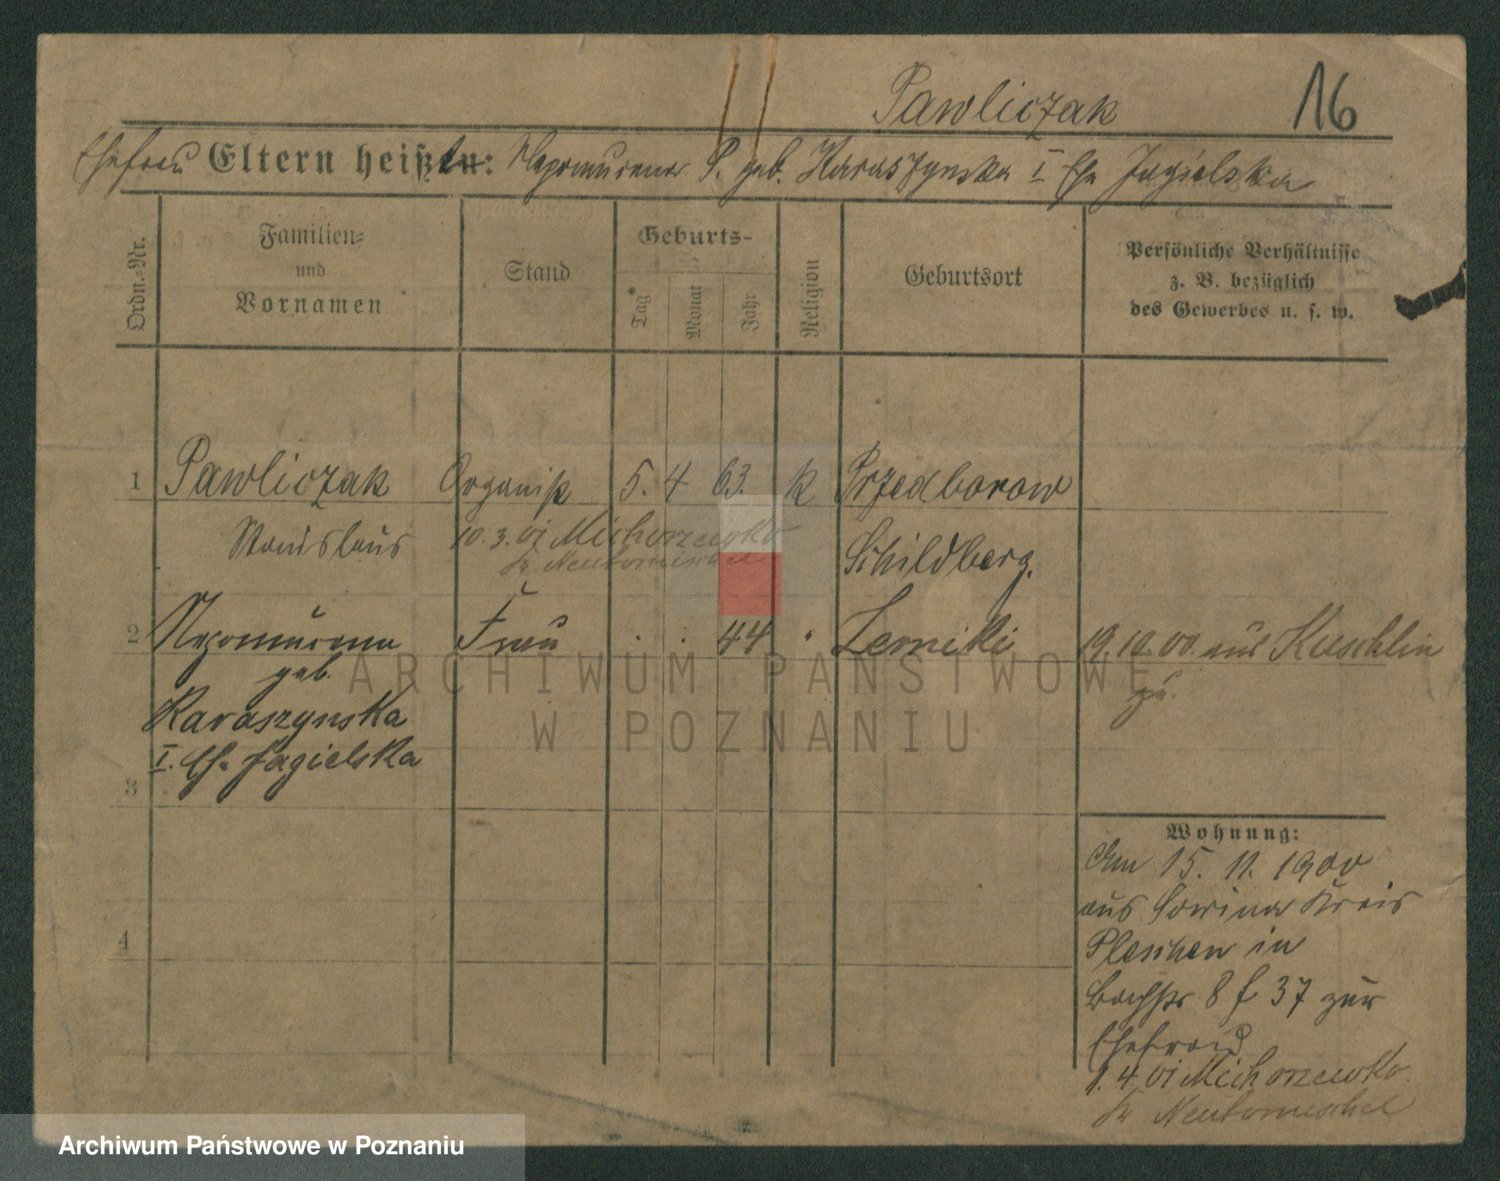 Pawliczak 16
Ehefrau Eltern heißen: Nepomucena P. geb. Karaszynska I Eh. Jagielska
Ordn.-Nr.
Familien-
und
Vornamen
Stand
Geburts-
Tag
Monat
Jahr
Religion
Geburtsort
Persönliche Verhältnisse
z. B. bezüglich
des Gewerbes u. s. w.
1 Pawliczak Organist 5. 4 63. k Przedborow
Stanislaus 10. 3. 01 Michorzewko Schildberg.
Kr. Neutomischel
2 Nepomucena Frau . . 44 " Zerniki 19. 10. 00. aus Kuschlin
geb. zu.
Karaszynska
I. Eh. Jagielska
3
Wohnung:
Am 15. 11. 1900
aus Sowina Kreis
Pleschen in
8 f. 37 zur
Ehefrau
1. 4. 01 Michorzewko.
Kr Neutomischel
4
ARCHIWUM PAŃSTWOWE
W POZNANIU
Archiwum Państwowe w Poznaniu